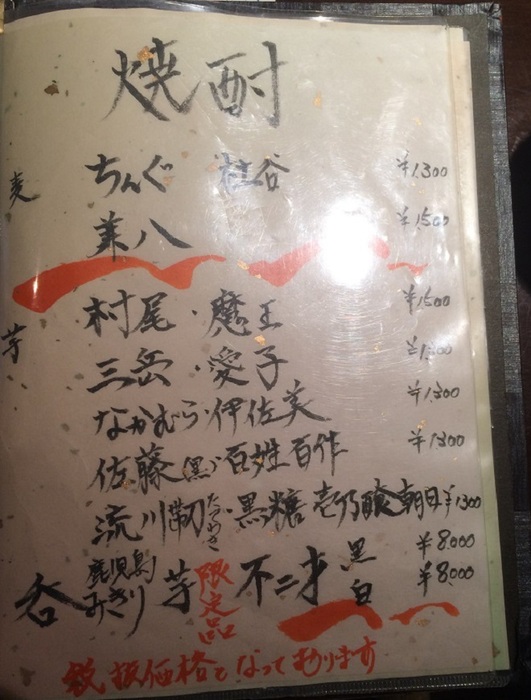 焼酎
麦
ちんぐ 壮谷 ¥1300
兼八 ¥1500
芋
村尾・魔王 ¥1500
三岳・愛子 ¥1300
なかむら・伊佐美 ¥1300
佐藤(黒)・百姓百作 ¥1300
流川 黒糖 壱乃醸 朝日 ¥1300
鹿児島 芋 限定品 不二才 黒 ¥8.000
白 ¥8.000
価格となっております